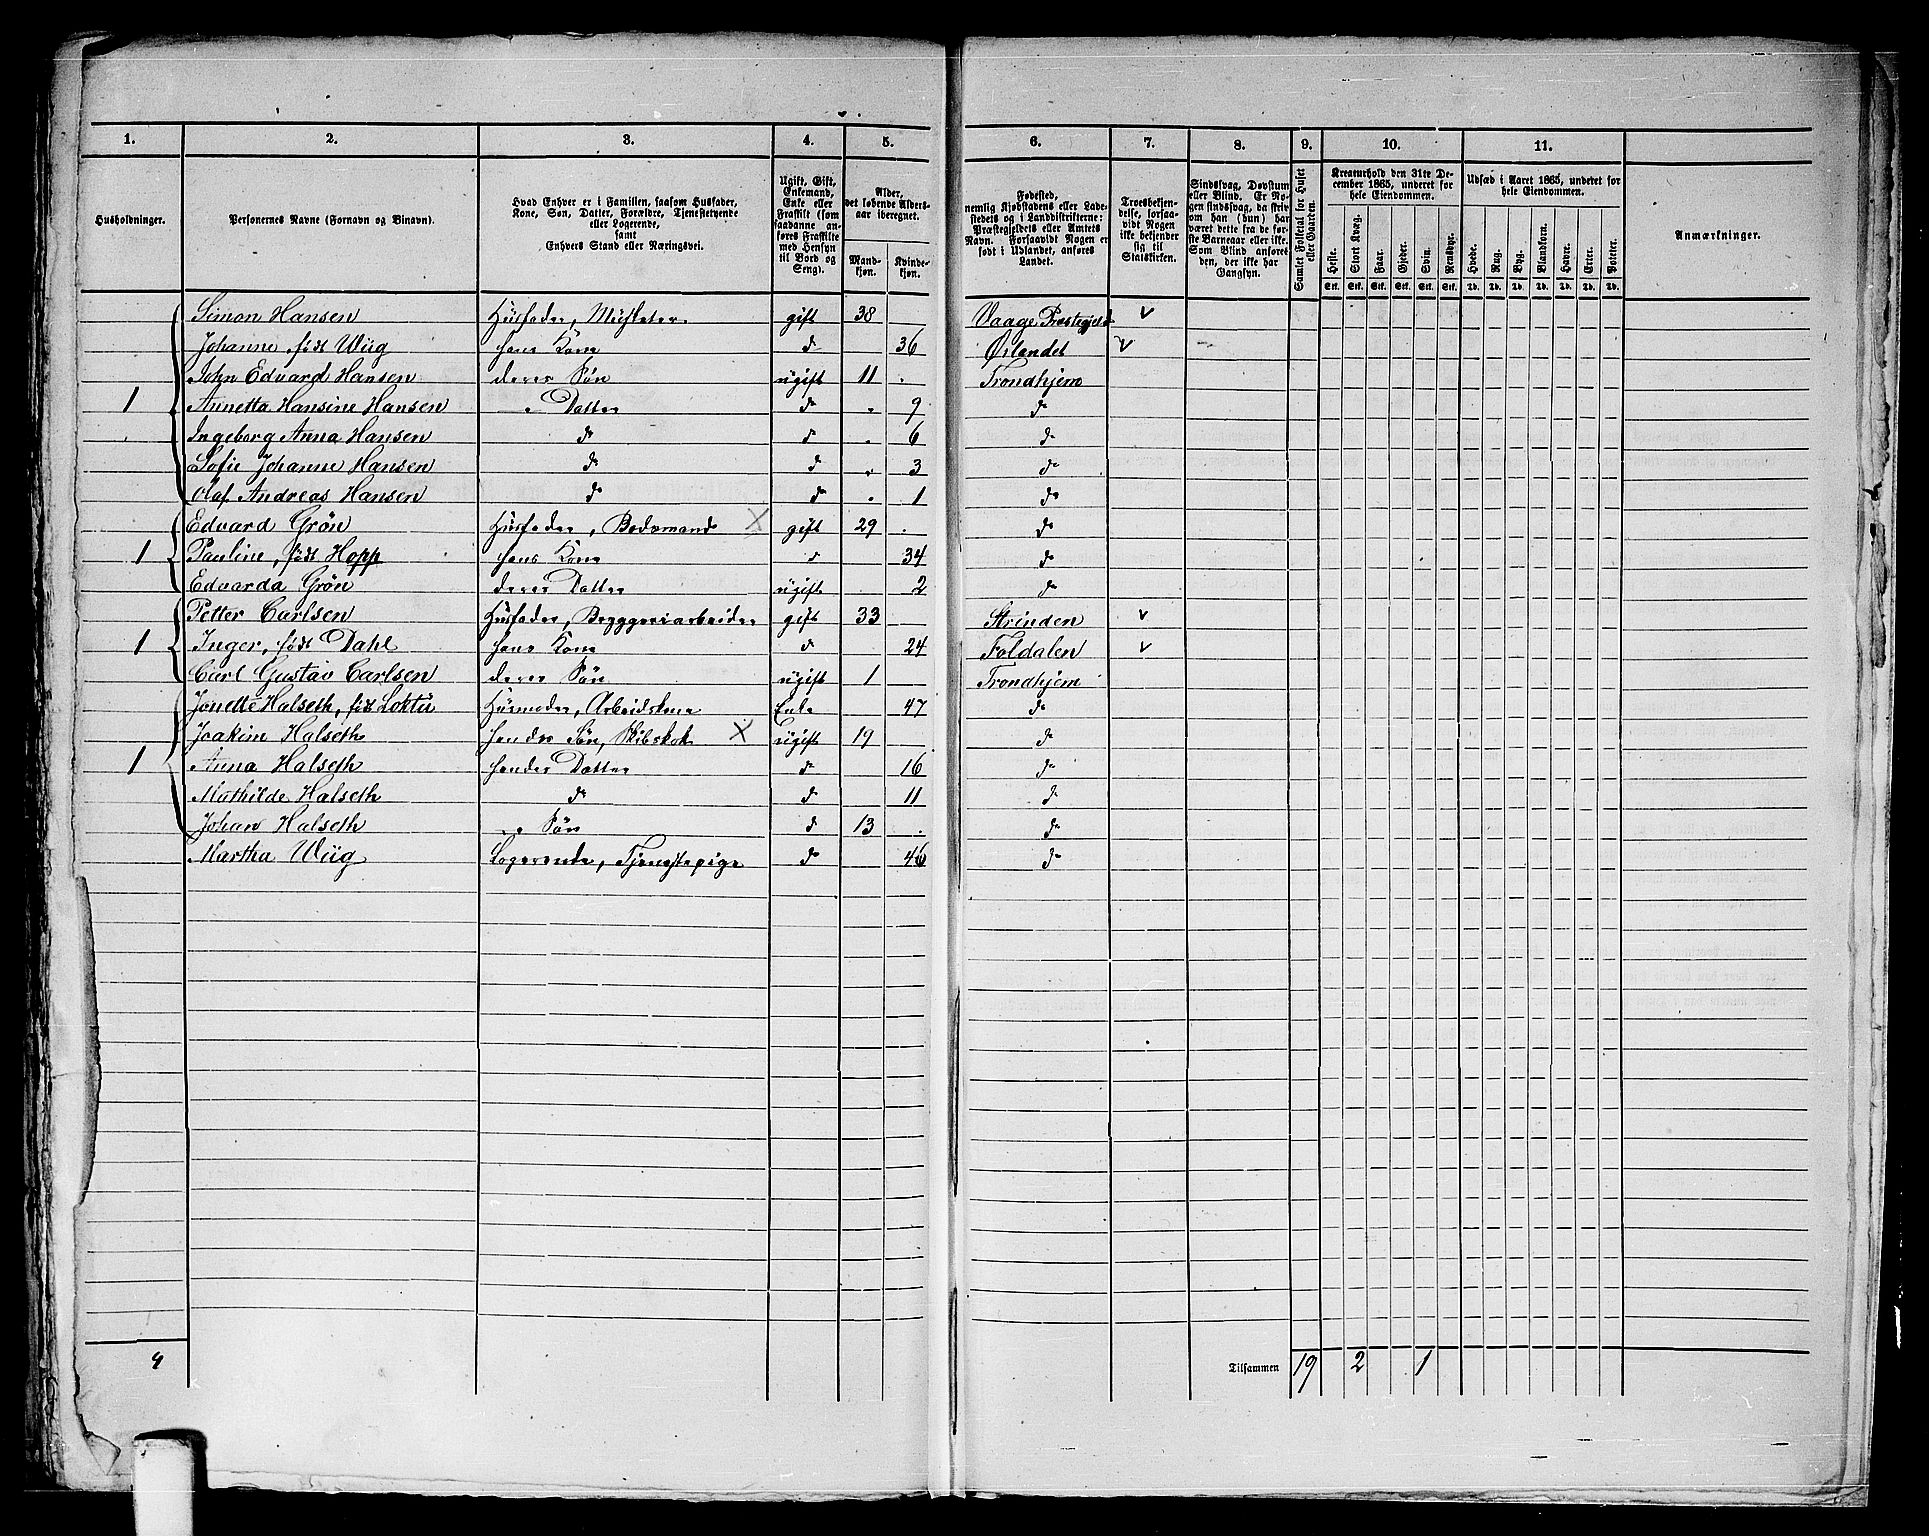 1. 2. 3. 4. 5. 6. 7. 8. 9. 10. 11.
Husholdninger.
Personernes Navne (Fornavn og Binavn).
Hvad Enhver er i Familien, saasom Husfader,
Kone, Søn, Datter, Forældre, Tjenestetyende
eller Logerende,
samt
Enhvers Stand eller Næringsvei.
Ugift, Gift,
Enkemand,
Enke eller
Fraskilt (som
saadanne an-
føres Fraskilte
med Hensyn
til Bord og
Seng).
Alder,
det løbende Alders-
aar iberegnet.
Mand-
kjøn.
Kvinde-
kjøn.
Fødested,
nemlig Kjøbstadens eller Lade-
stedets og i Landdistrikterne:
Præstegjeldets eller Amtets
Navn. Forsaavidt Nogen er
født i Udlandet, anføres
Landet.
Troesbekjen-
delse, forsaa-
vidt Nogen
ikke bekjender
sig til
Statskirken.
Sindssvag, Døvstum
eller Blind. Er No-
gen sindssvag, da skriv
om han (hun) har
været dette fra de før-
ste Barneaar eller ikke.
Som Blind anføres
den, der ikke har
Gangsyn.
Samlet Folketal for Huset
eller Gaarden.
Kreaturhold den 31te De-
cember 1865, underet for
hele Eiendommen.
Heste. Stort Kvæg. Faar. Gjeder. Svin. Rensdyr.
Stk. Stk. Stk. Stk. Stk. Stk.
Udsæd i Aaret 1865, underet for
hele Eiendommen.
Hvede. Rug. Byg. Blandkorn. Havre. Erter. Poteter.
Td. Td. Td. Td. Td. Td. Td.
Anmærkninger.
Simon Hansen Husfader, Musketer gift 38 Vaage Præstegjeld v
Johanne født Wiig hans Kone d 36 Ørlandet v
John Edvard Hansen deres Søn ugift 11 Trondhjem
1 Annetta Hansine Hansen " Datter d 9 d
Ingeborg Anna Hansen d d 6 d
Sofie Johanne Hansen d d 3 d
Olaf Andreas Hansen d d 1 d
Edvard Grön Husfader, Bødsmand X gift 29 d
1 Pauline, født Hopp hans Kone d 34 d
Edvarda Grön deres Datter ugift 2 d
Petter Carlsen Husfader, Bryggeriarbeider gift 33 Strinden v
1 Inger, født Dahl hans Kone d 24 Foldalen v
Carl Gustav Carlsen deres Søn ugift 1 Trondhjem
Jonette Halseth, født Loktu Husmoder, Arbeidskone Enke 47 d
Joakim Halseth hendes Søn, Skibskok X ugift 19 d
1 Anna Halseth hendes Datter d 16 d
Mathilde Halseth d d 11 d
Johan Halseth " Søn d 13 d
Martha Wiig Logerende, Tjenestepige d 46 d
4 Tilsammen 19 2 1